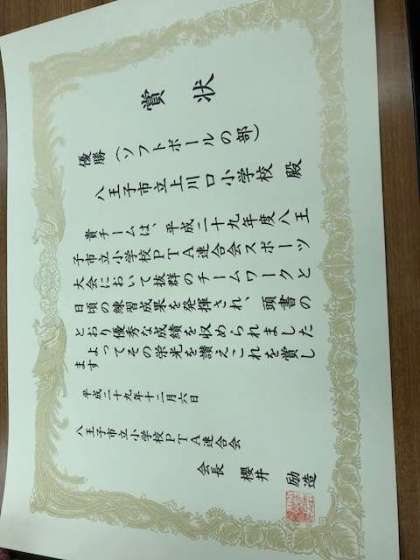 賞状
優勝（ソフトボールの部）
八王子市立上川口小学校 殿
貴チームは、平成二十九年度八王
子市立小学校PTA連合会スポーツ
大会において抜群のチームワークと
日頃の練習成果を発揮され、頭書の
とおり優秀な成績を収められました
よってその栄光を讃えこれを賞し
ます
平成二十九年十二月六日
八王子市立小学校PTA連合会
会長 櫻井 励造